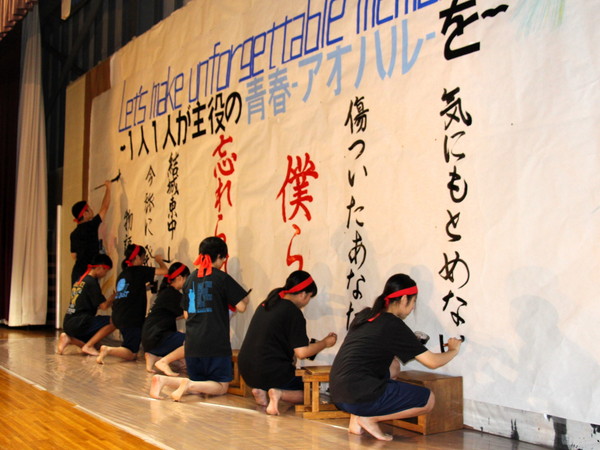 Let's make unforgettable memo
-1人1人が主役の青春-アオハル-を~
気にもとめな
傷ついたあなた
僕ら
忘れら
結城東中
今弥に
物語